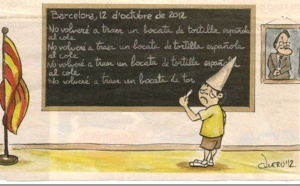 Barcelona, 12 d'octubre de 2012
No volveré a traer un bocata de tortilla española
al cole
No volveré a traer un bocata de tortilla española
al cole
No volveré a traer un bocata de tortilla española
al cole
No volveré a traer un bocata de tor
QUERO'12